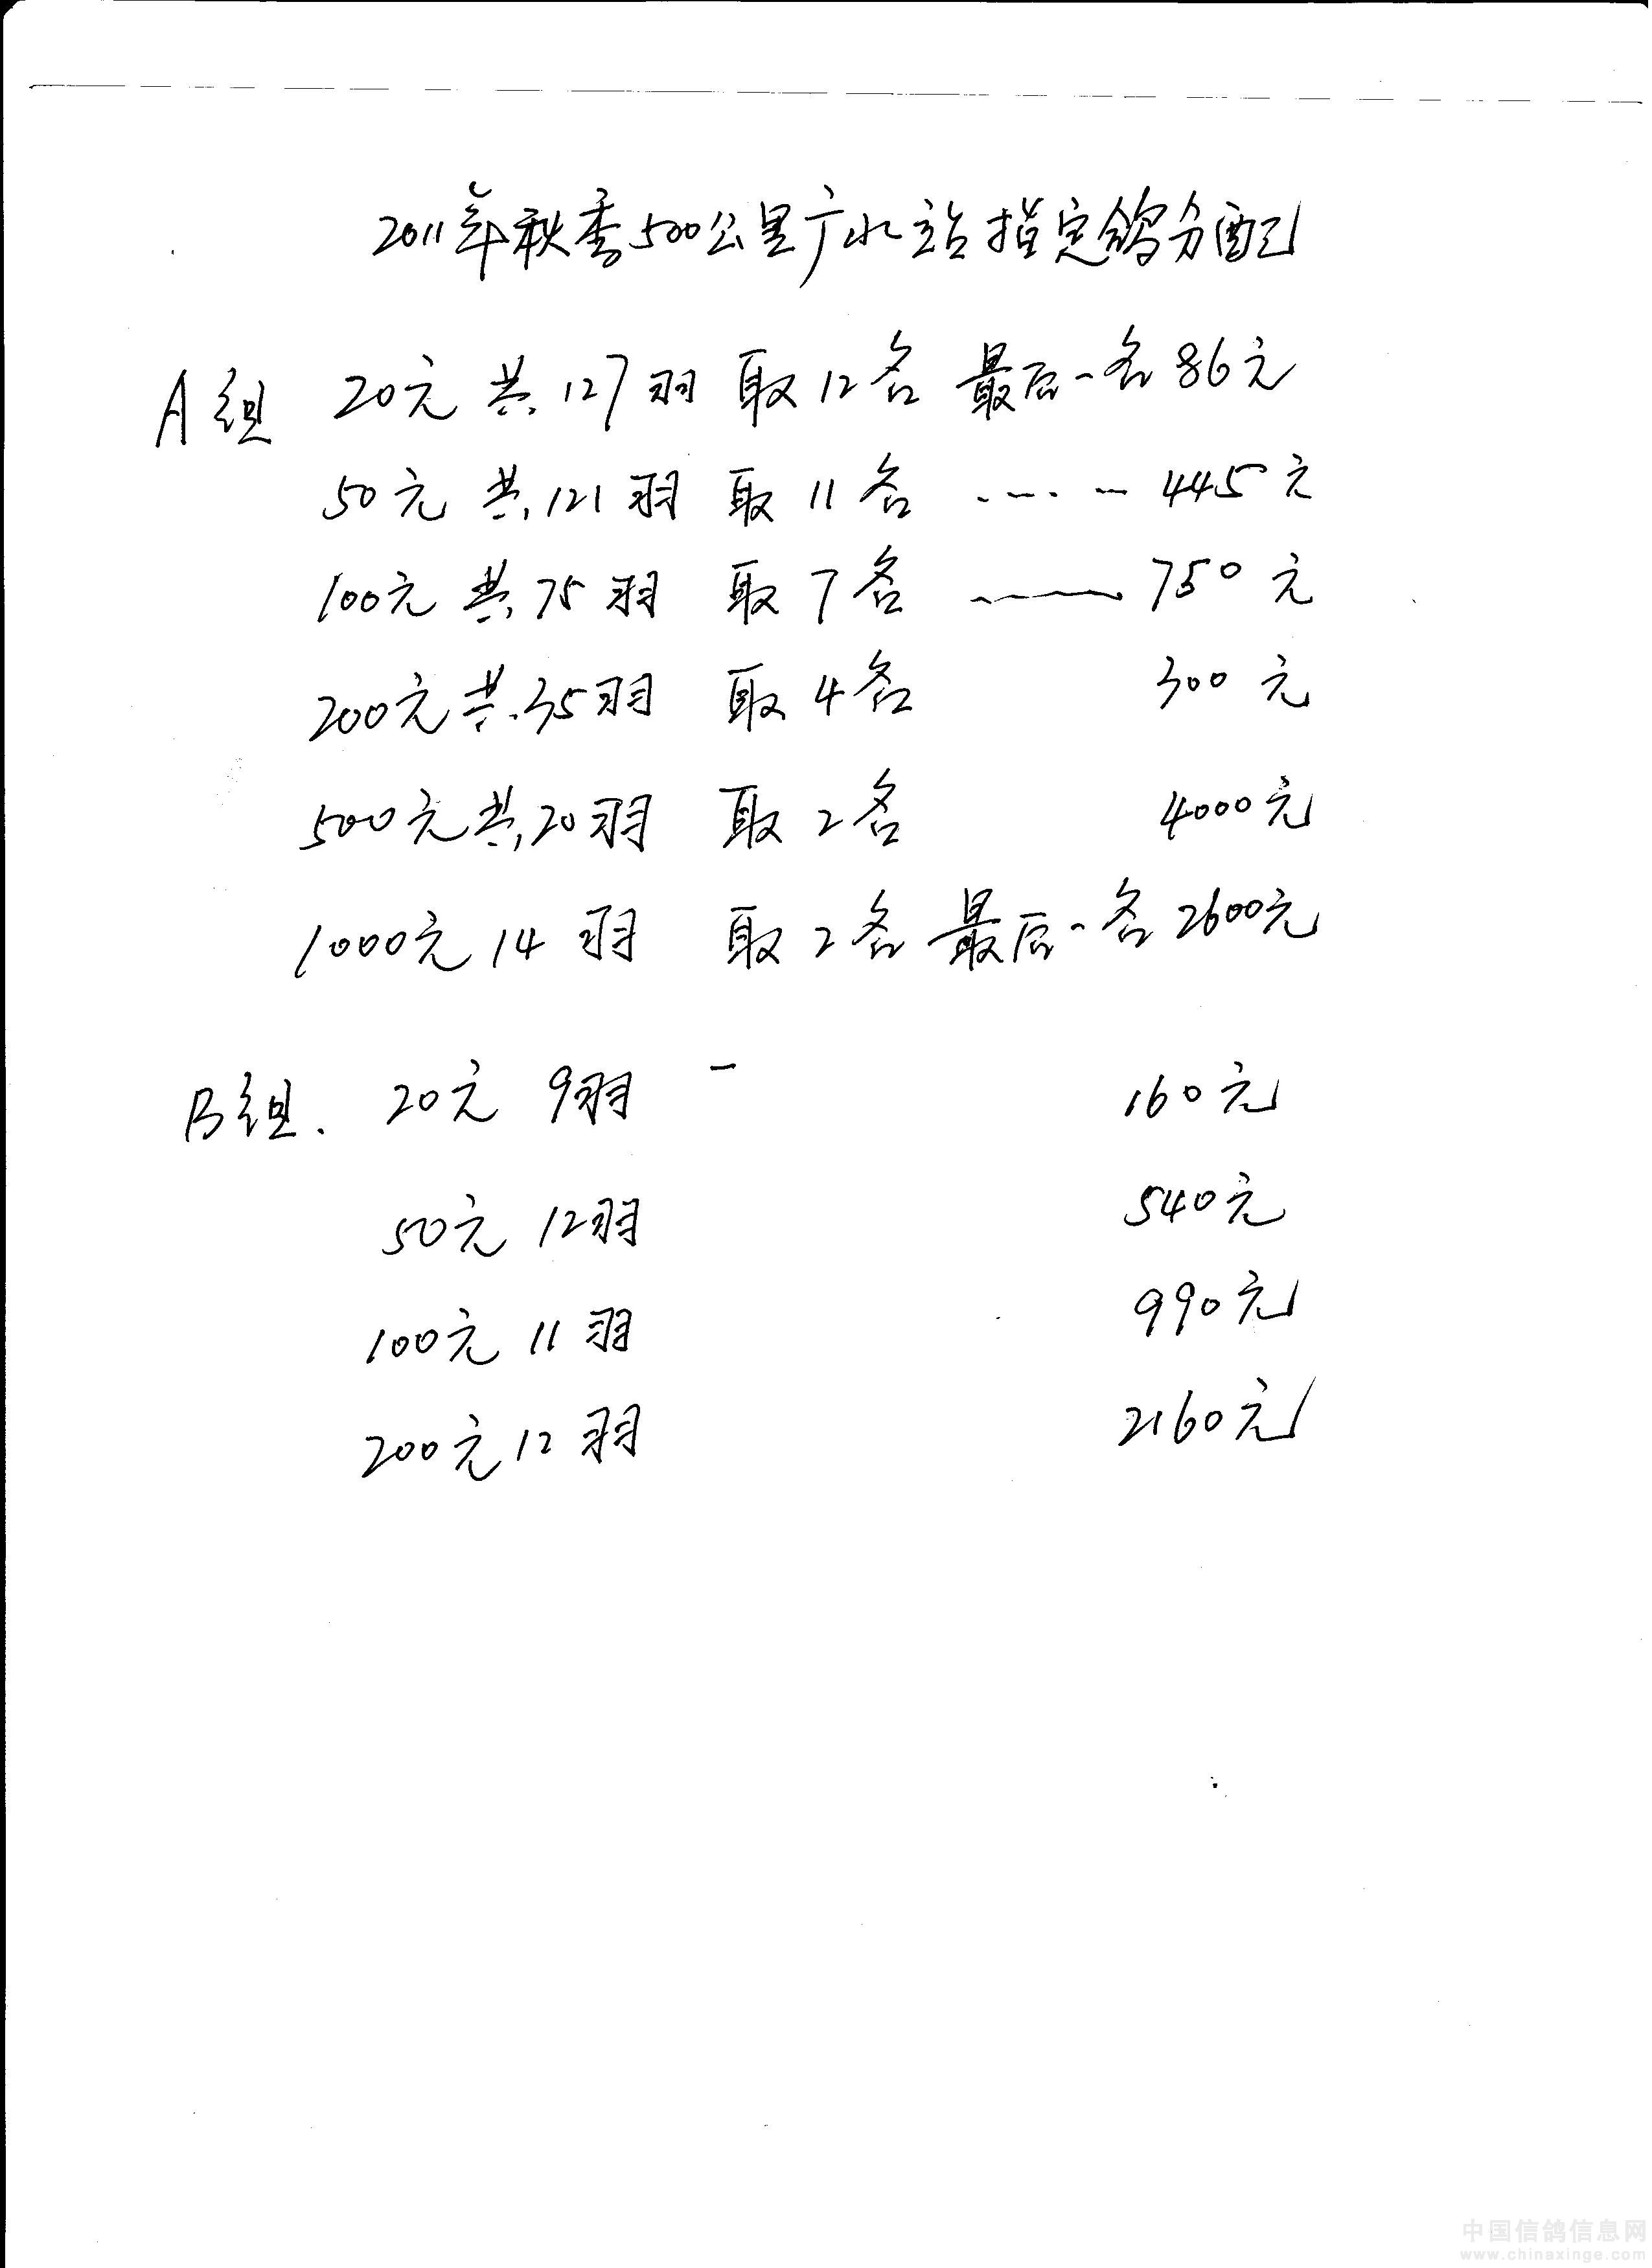 2011年秋季500公里广水站指定鸽分配
A组 20元 共127羽 取12名 最后一名86元
50元 共121羽 取11名 ...... 445元
100元 共75羽 取7名 ...... 750元
200元共35羽 取4名 300元
500元共20羽 取2名 4000元
1000元14羽 取2名 最后一名2600元
B组. 20元 9羽 一 160元
50元 12羽 540元
100元 11羽 990元
200元12羽 2160元
中国信鸽信息网
www.chinaxinge.com